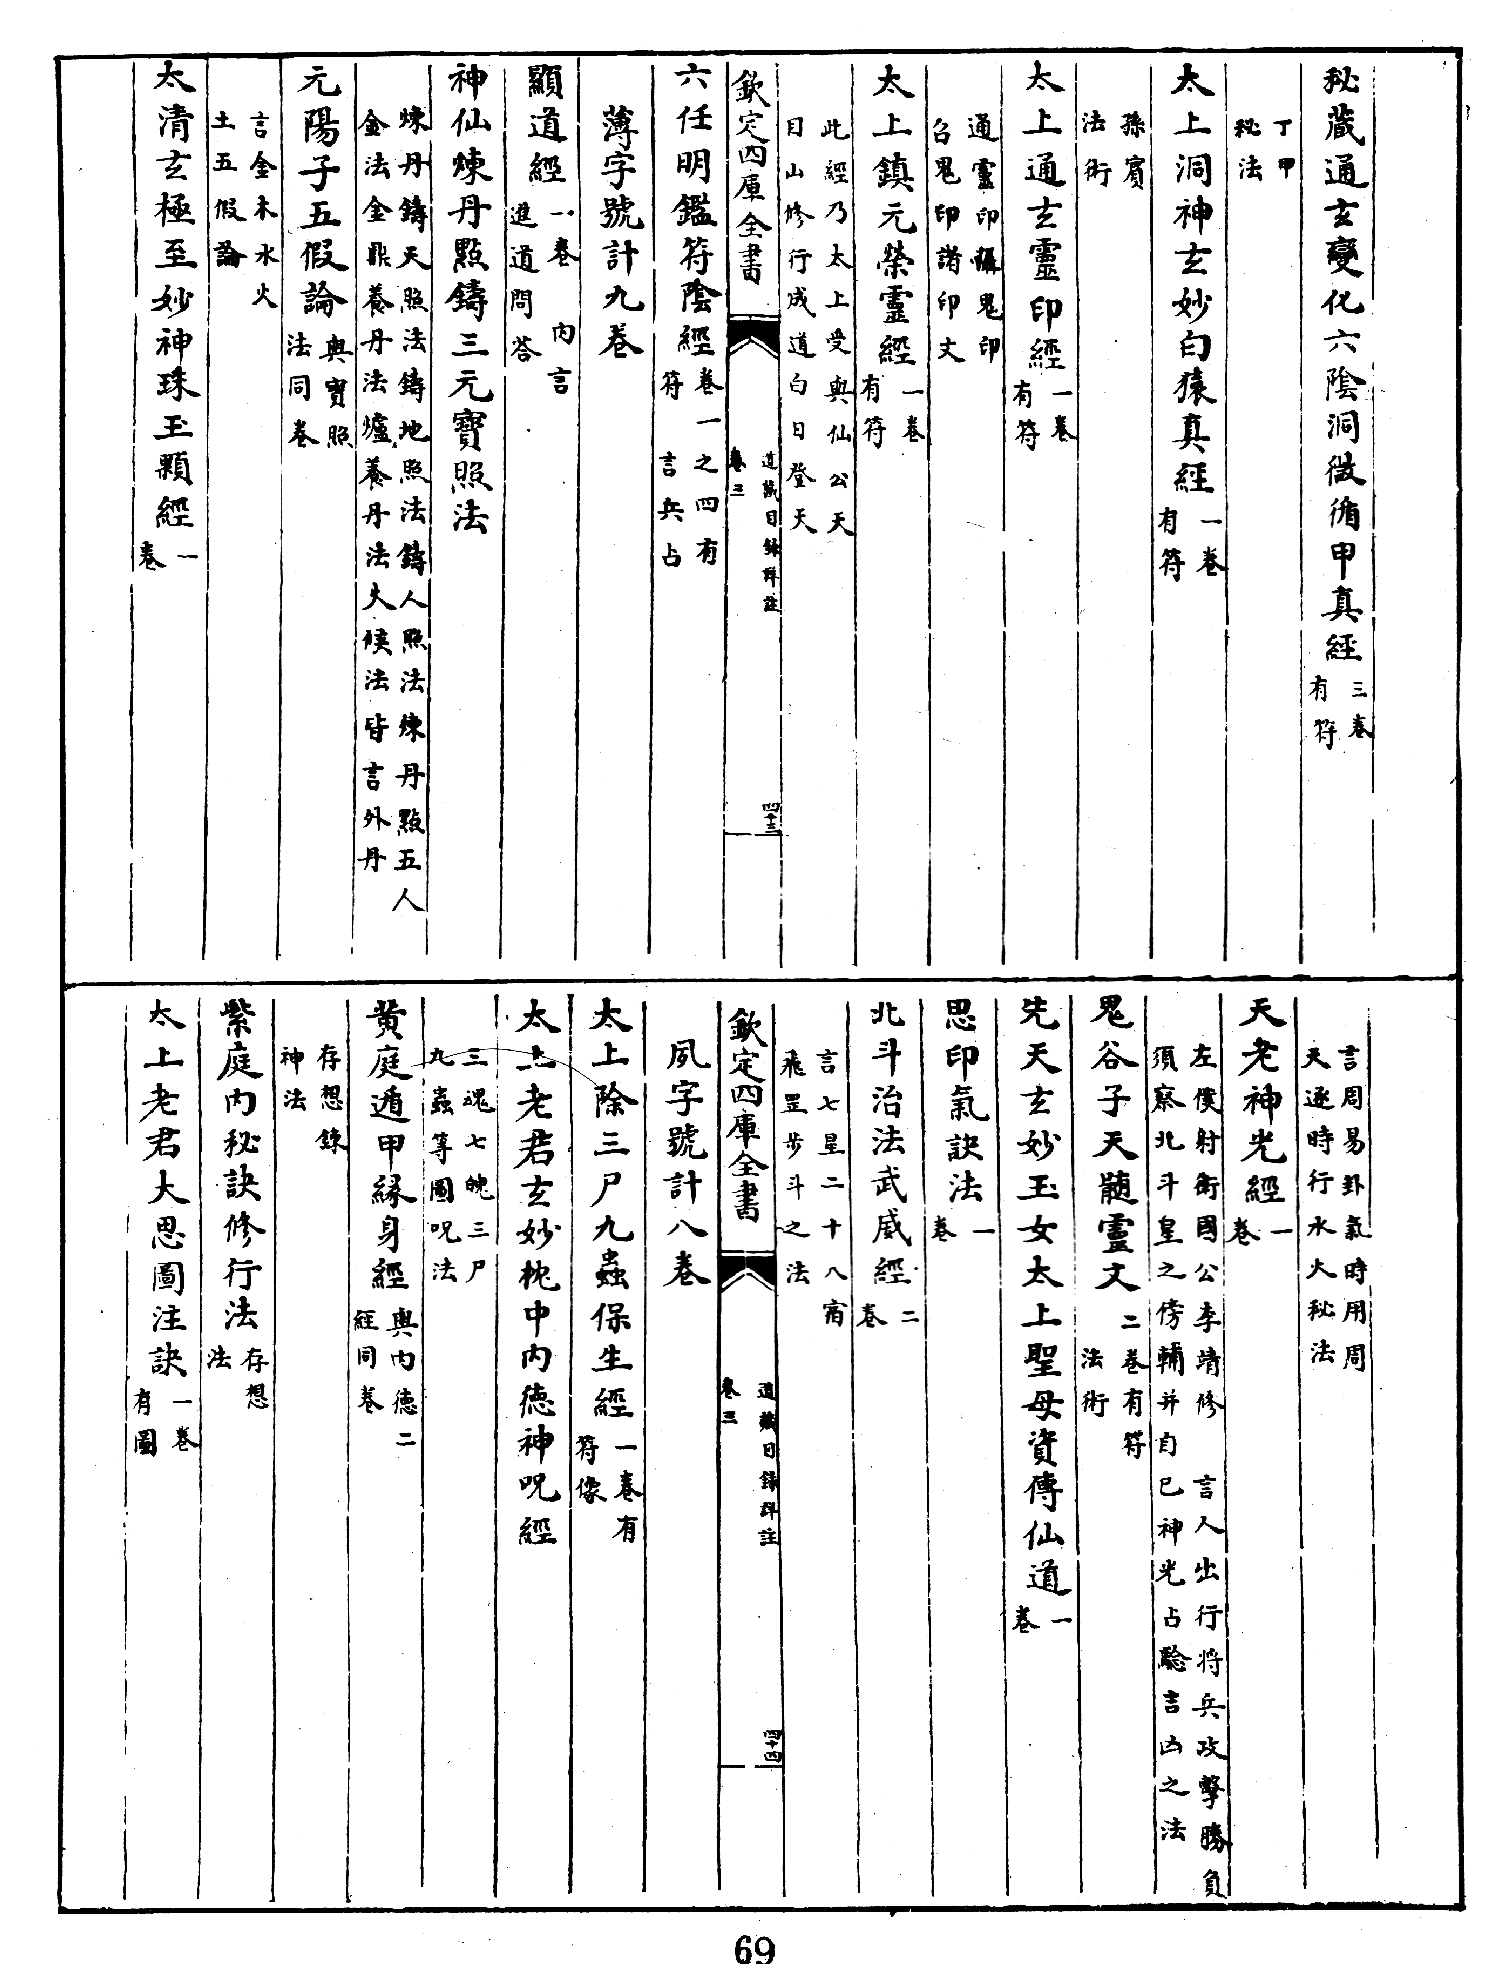 秘藏通玄變化六陰洞微遁甲真經三卷有符
丁甲秘法
太上洞神玄妙白猿真經一卷有符
孫賓法術
太上通玄靈印經一卷有符
通靈印攝鬼印召鬼印諸印文
太上鎮元榮靈經一卷有符
此經乃太上受與仙公天目山修行成道白日登天
欽定四庫全書
道藏目錄詳註
卷三
四十三
六任明鑑符陰經卷一之四有符言兵占
薄字號計九卷
顯道經一卷內言進道問答
神仙煉丹點鑄三元寶照法
煉丹鑄天照法鑄地照法鑄人照法煉丹點五人金法金鼎養丹法爐養丹法火候法皆言外丹
元陽子五假論與寶照法同卷
言金木水火土五假論
太清玄極至妙神珠玉顆經一卷
言周易卦氣時用周天逐時行水火秘法
天老神光經一卷
左僕射衛國公李靖修言人出行將兵攻擊勝負須察北斗皇之傍輔并自已神光占驗吉凶之法
鬼谷子天髓靈文二卷有符法術
先天玄妙玉女太上聖母資傳仙道一卷
思印氣訣法一卷
北斗治法武威經二卷
言七星二十八宿飛罡步斗之法
欽定四庫全書
道藏目錄詳註
卷三
四十四
夙字號計八卷
太上除三尸九蟲保生經一卷有符像
太上老君玄妙枕中內德神呪經
三魂七魄三尸九蟲等圖呪法
黃庭遁甲緣身經與內德二經同卷
存想錄神法
紫庭內秘訣修行法存想法
太上老君大思圖注訣一卷有圖
69